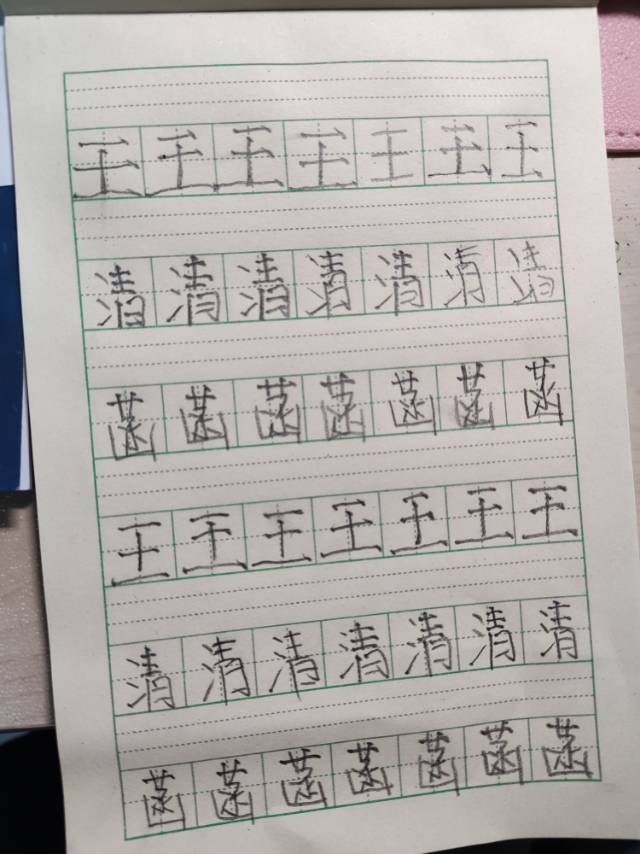 王王王王王王王
清清清清清清清
菡菡菡菡菡菡菡
王王王王王王王
清清清清清清清
菡菡菡菡菡菡菡